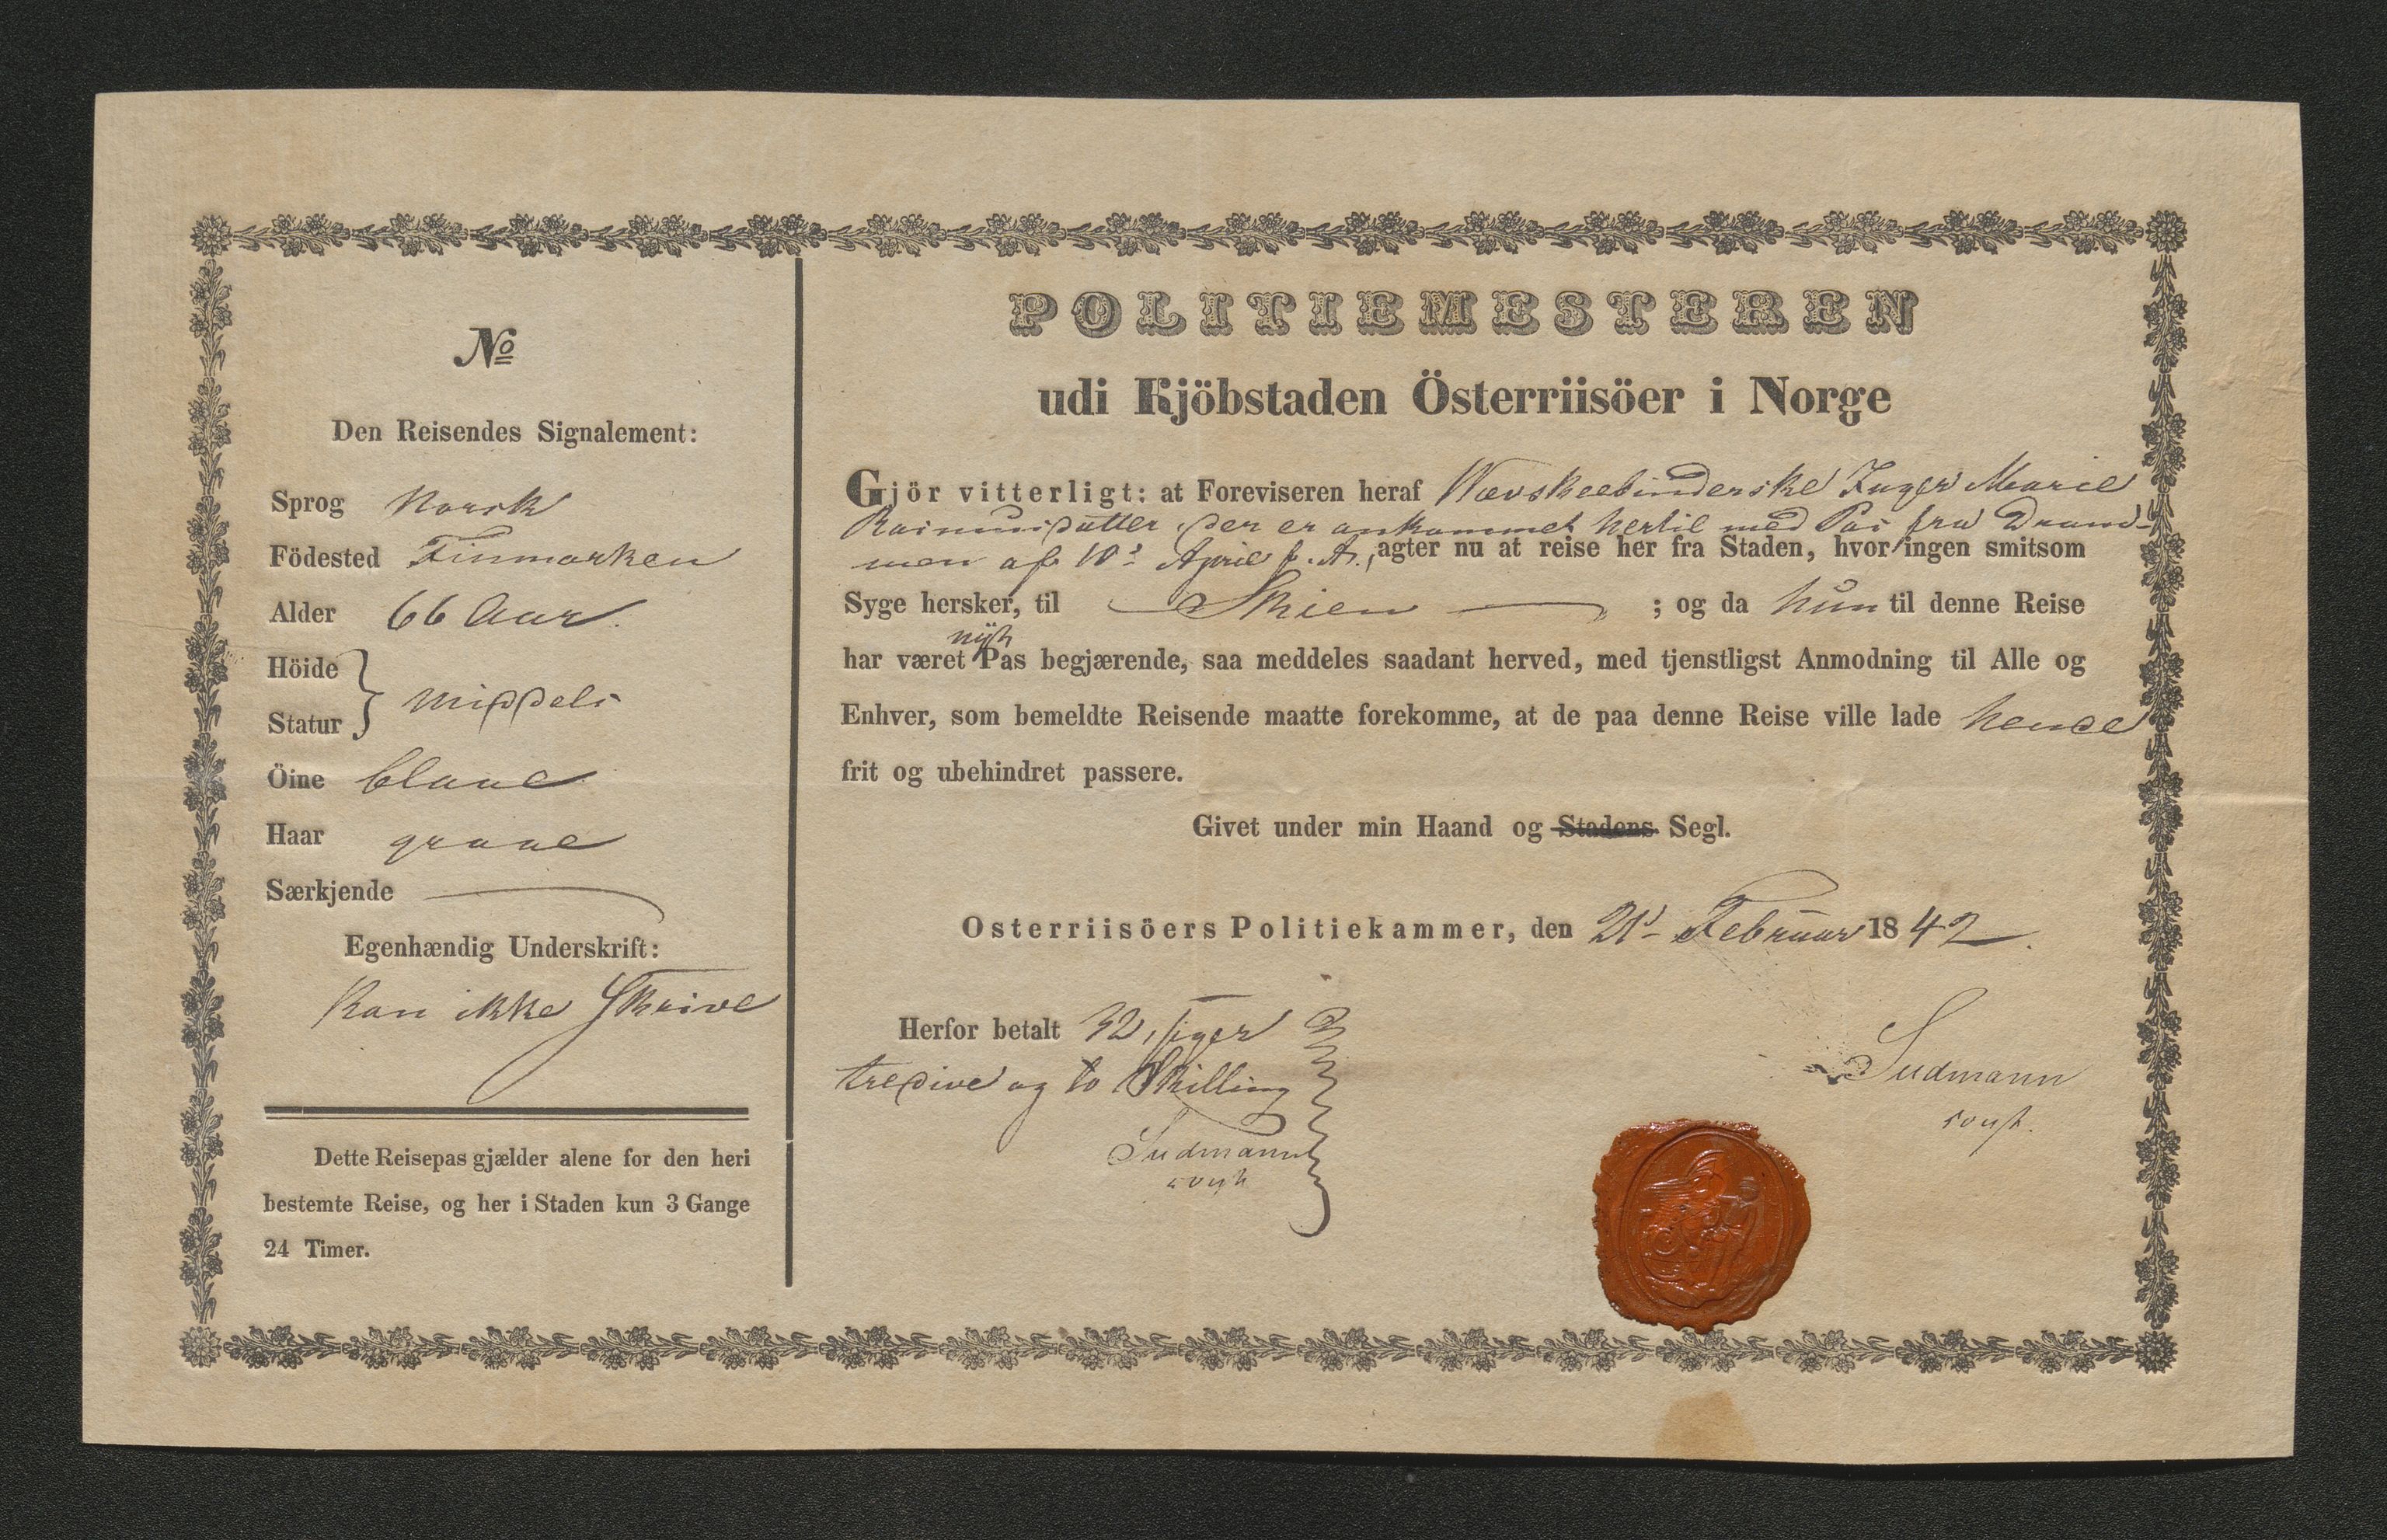 No
Den Reisendes Signalement:
Sprog Norsk
Födested Finmarken
Alder 66 Aar.
Höide
Statur } middels
Öine blaae
Haar graae
Særkjende
Egenhændig Underskrift:
Kan ikke Skrive
Dette Reisepas gjælder alene for den heri
bestemte Reise, og her i Staden kun 3 Gange
24 Timer.
POLITIEMESTEREN
udi Kjöbstaden Österriisöer i Norge
Gjör vitterligt: at Foreviseren heraf Inger Marie
Rasmusdatter der er ankommet hertil med Pas fra Dram-
men af 10d April f. A., agter nu at reise her fra Staden, hvor ingen smitsom
Syge hersker, til Skien ; og da hun til denne Reise
har været nyt Pas begjærende, saa meddeles saadant herved, med tjenstligst Anmodning til Alle og
Enhver, som bemeldte Reisende maatte forekomme, at de paa denne Reise ville lade hende
frit og ubehindret passere.
Givet under min Haand og Stadens Segl.
Osterriisöers Politiekammer, den 21d Februar 1842.
Herfor betalt 32, siger
tredive og to Skilling
Sudmann
const
Sudmann
const.